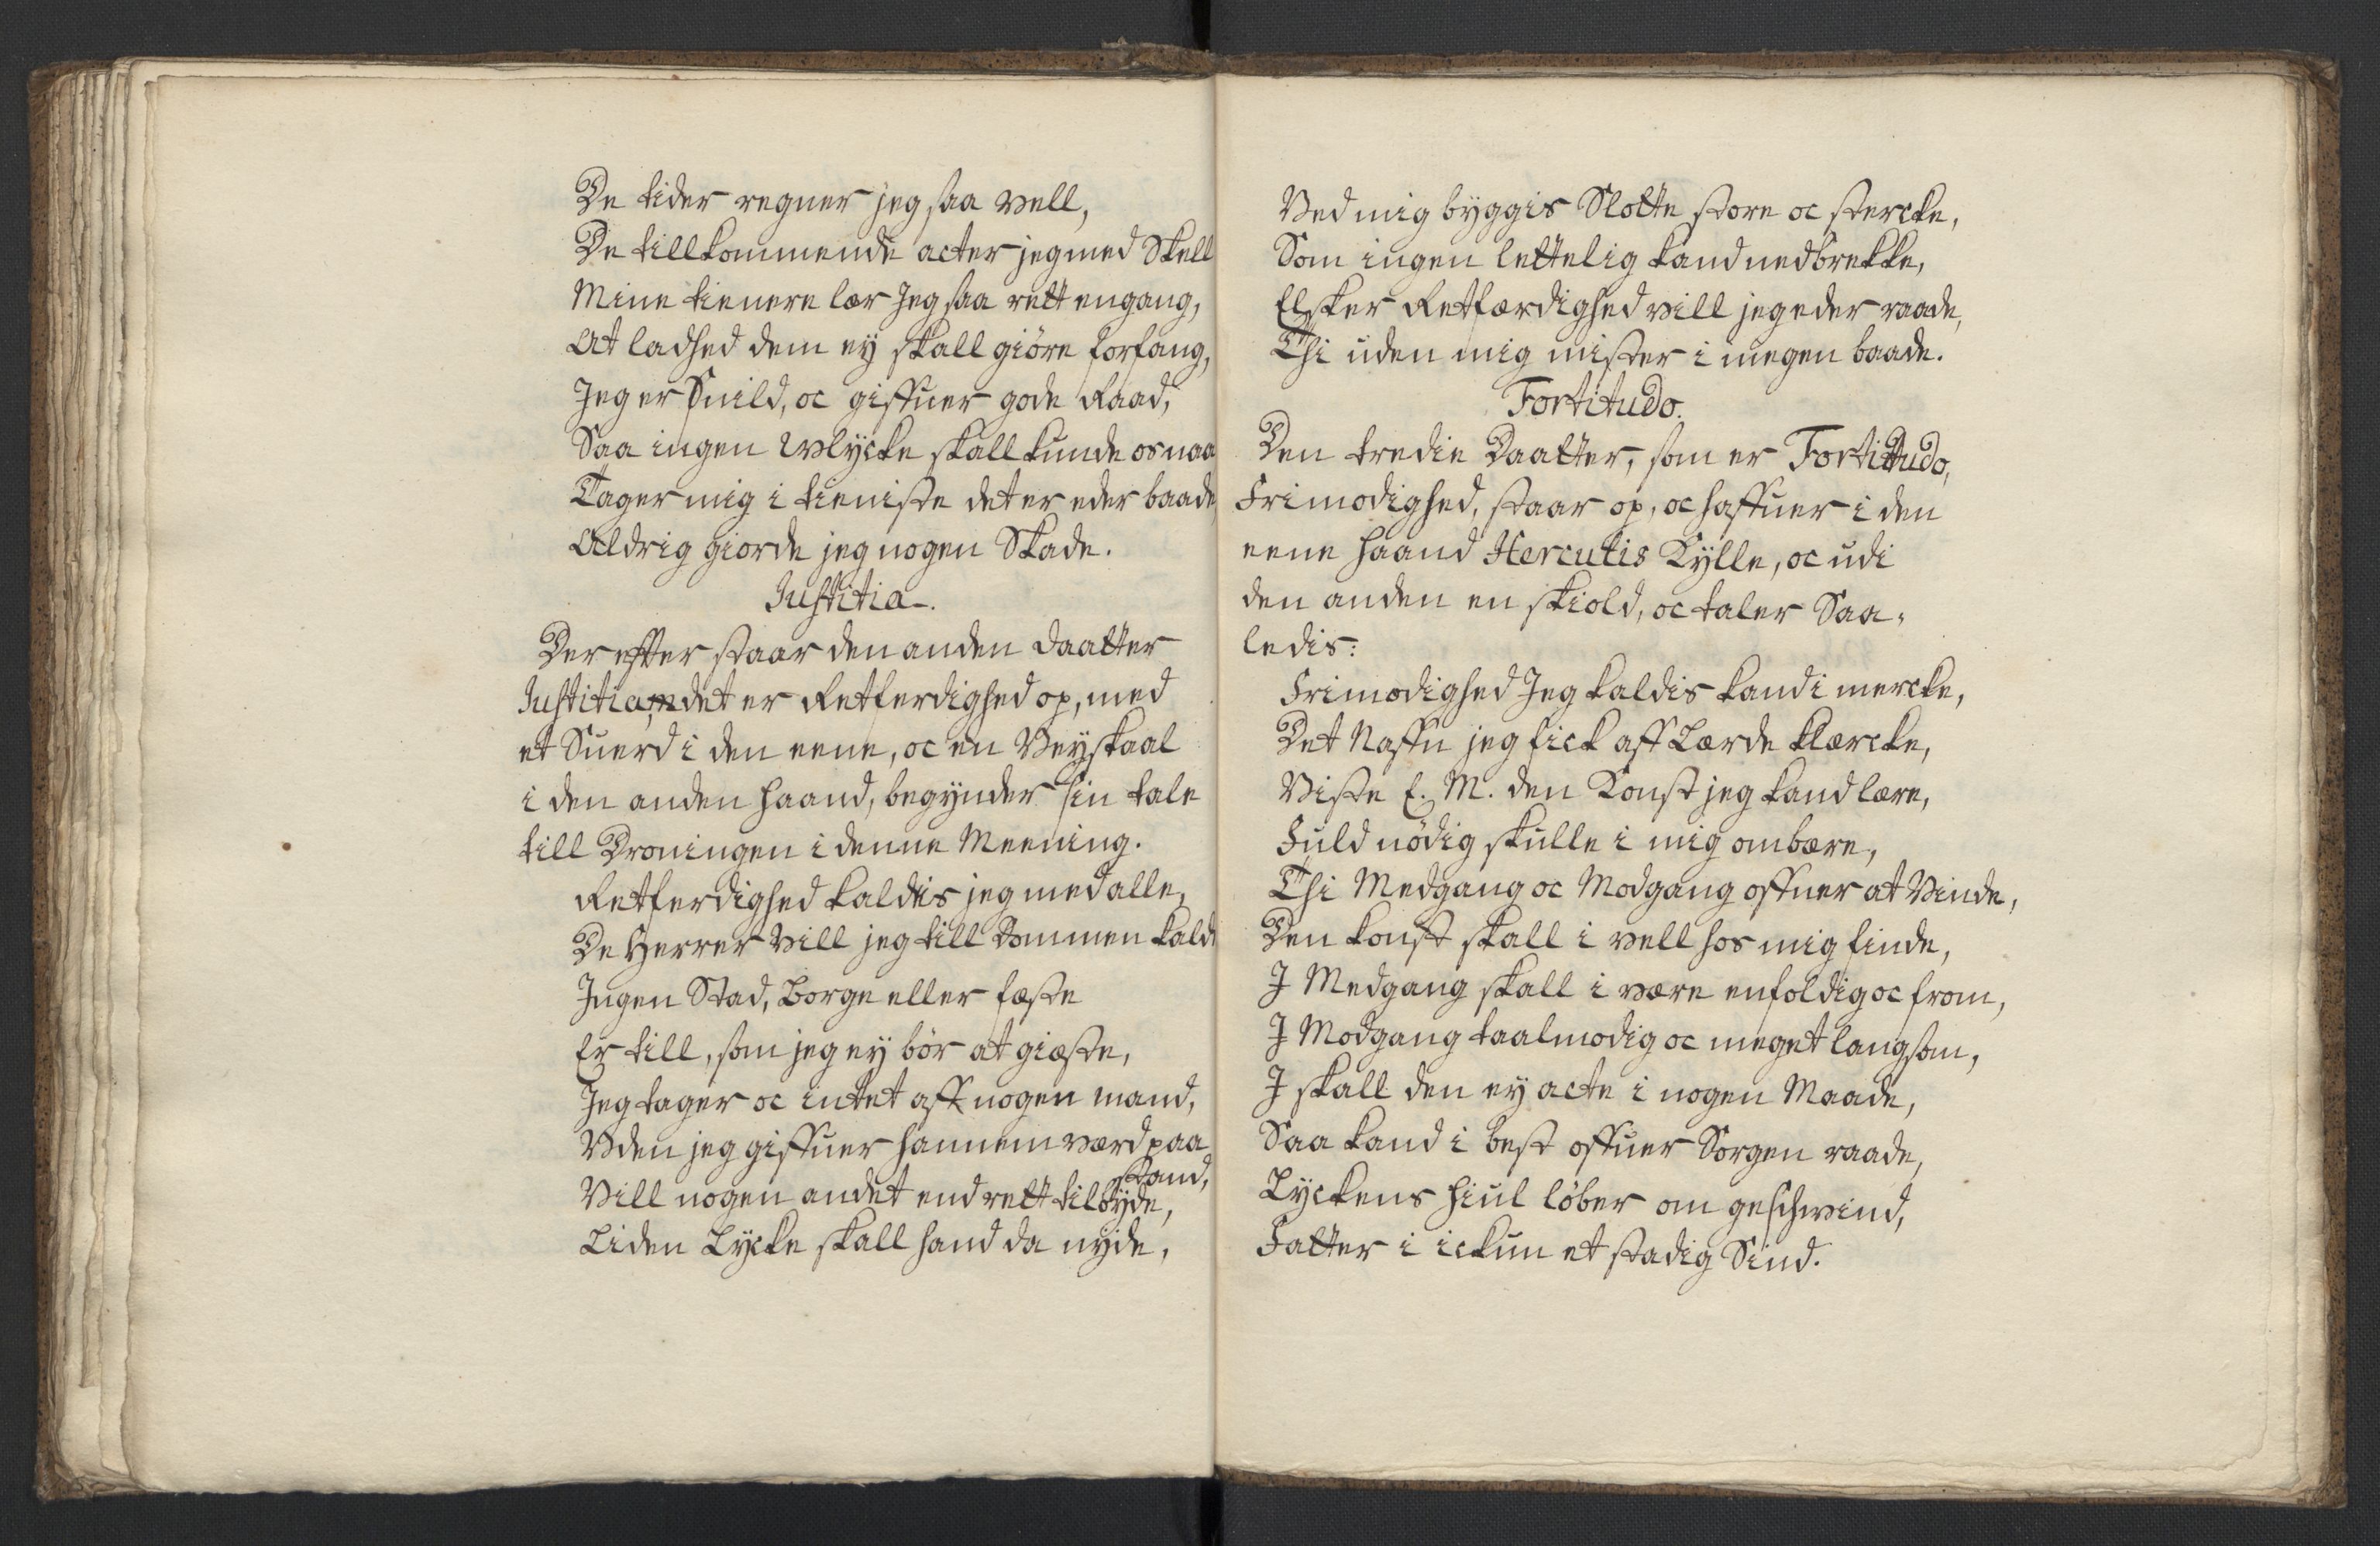 De tider regner jeg saa vell,
De tillkommende acter jeg med Skell
Mine tienere lær Jeg saa rett engang,
At ladhed dem ey skall giöre forfang,
Jeg er Snild, oc giffuer gode Raad,
Saa ingen Vlycke skall kunde os naa
Tager mig i tieniste det er eder baade,
Aldrig giorde jeg nogen Skade.
Justitia.
Der effter staar den anden Daatter
Justitia, det er Retferdighed op, med
et Suerd i den eene, oc en Veyskaal
i den anden haand, begynder sin tale
till Droningen i denne Meening.
Retferdighed kaldis jeg med alle,
De Herrer Vill jeg till Dommen kald
Ingen Stad, Borge eller fæste
Er till, som jeg ey bör at giæste,
Jeg tager oc intet aff nogen mand,
Vden jeg giffuer hannem værd paa
stand,
Vill nogen andet end rett tilbyde,
Liden Lycke skall hand da nyde,
Ved mig byggis Slotte store oc stercke,
Som ingen lettelig kand nedbrekke,
Elsker Retfærdighed vill jeg eder raade,
Thi uden mig mister i megen baade.
Fortitudo.
Den tredie Daatter, som er Fortitudo,
Frimodighed, staar op, oc haffuer i den
eene haand Herculis Kylle, oc udi
den anden en skiold, oc taler Saa-
ledis:
Frimodighed Jeg kaldis kand i mercke,
Det Naffn jeg fick aff Lærde klærcke,
Viste E. M. den Konst jeg kand lære,
Fuld nödig skulle i mig ombære,
Thi Medgang oc Modgang offuer at Vinde,
Den konst skall i vell hos mig finde,
J Medgang skall i være enfoldig oc from,
J Modgang taalmodig oc meget langsom,
J skall den ey acte i nogen Maade,
Saa kand i best offuer Sorgen raade,
Lyckens hiul löber om geschwind,
Fatter i ickun et stadig Sind.